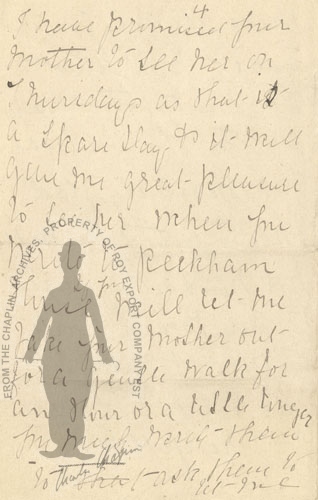 4
I have promised your
Mother to see her on
Thursdays as that is
a spare day & it will
give me great pleasure
to see her when you
write to Peckham
House will let me
take your Mother out
for a gentle walk for
an hour or a little longer
you might write them
to ask them to
let me
FROM THE CHAPLIN ARCHIVES, PROPERTY OF ROY EXPORT COMPANY EST